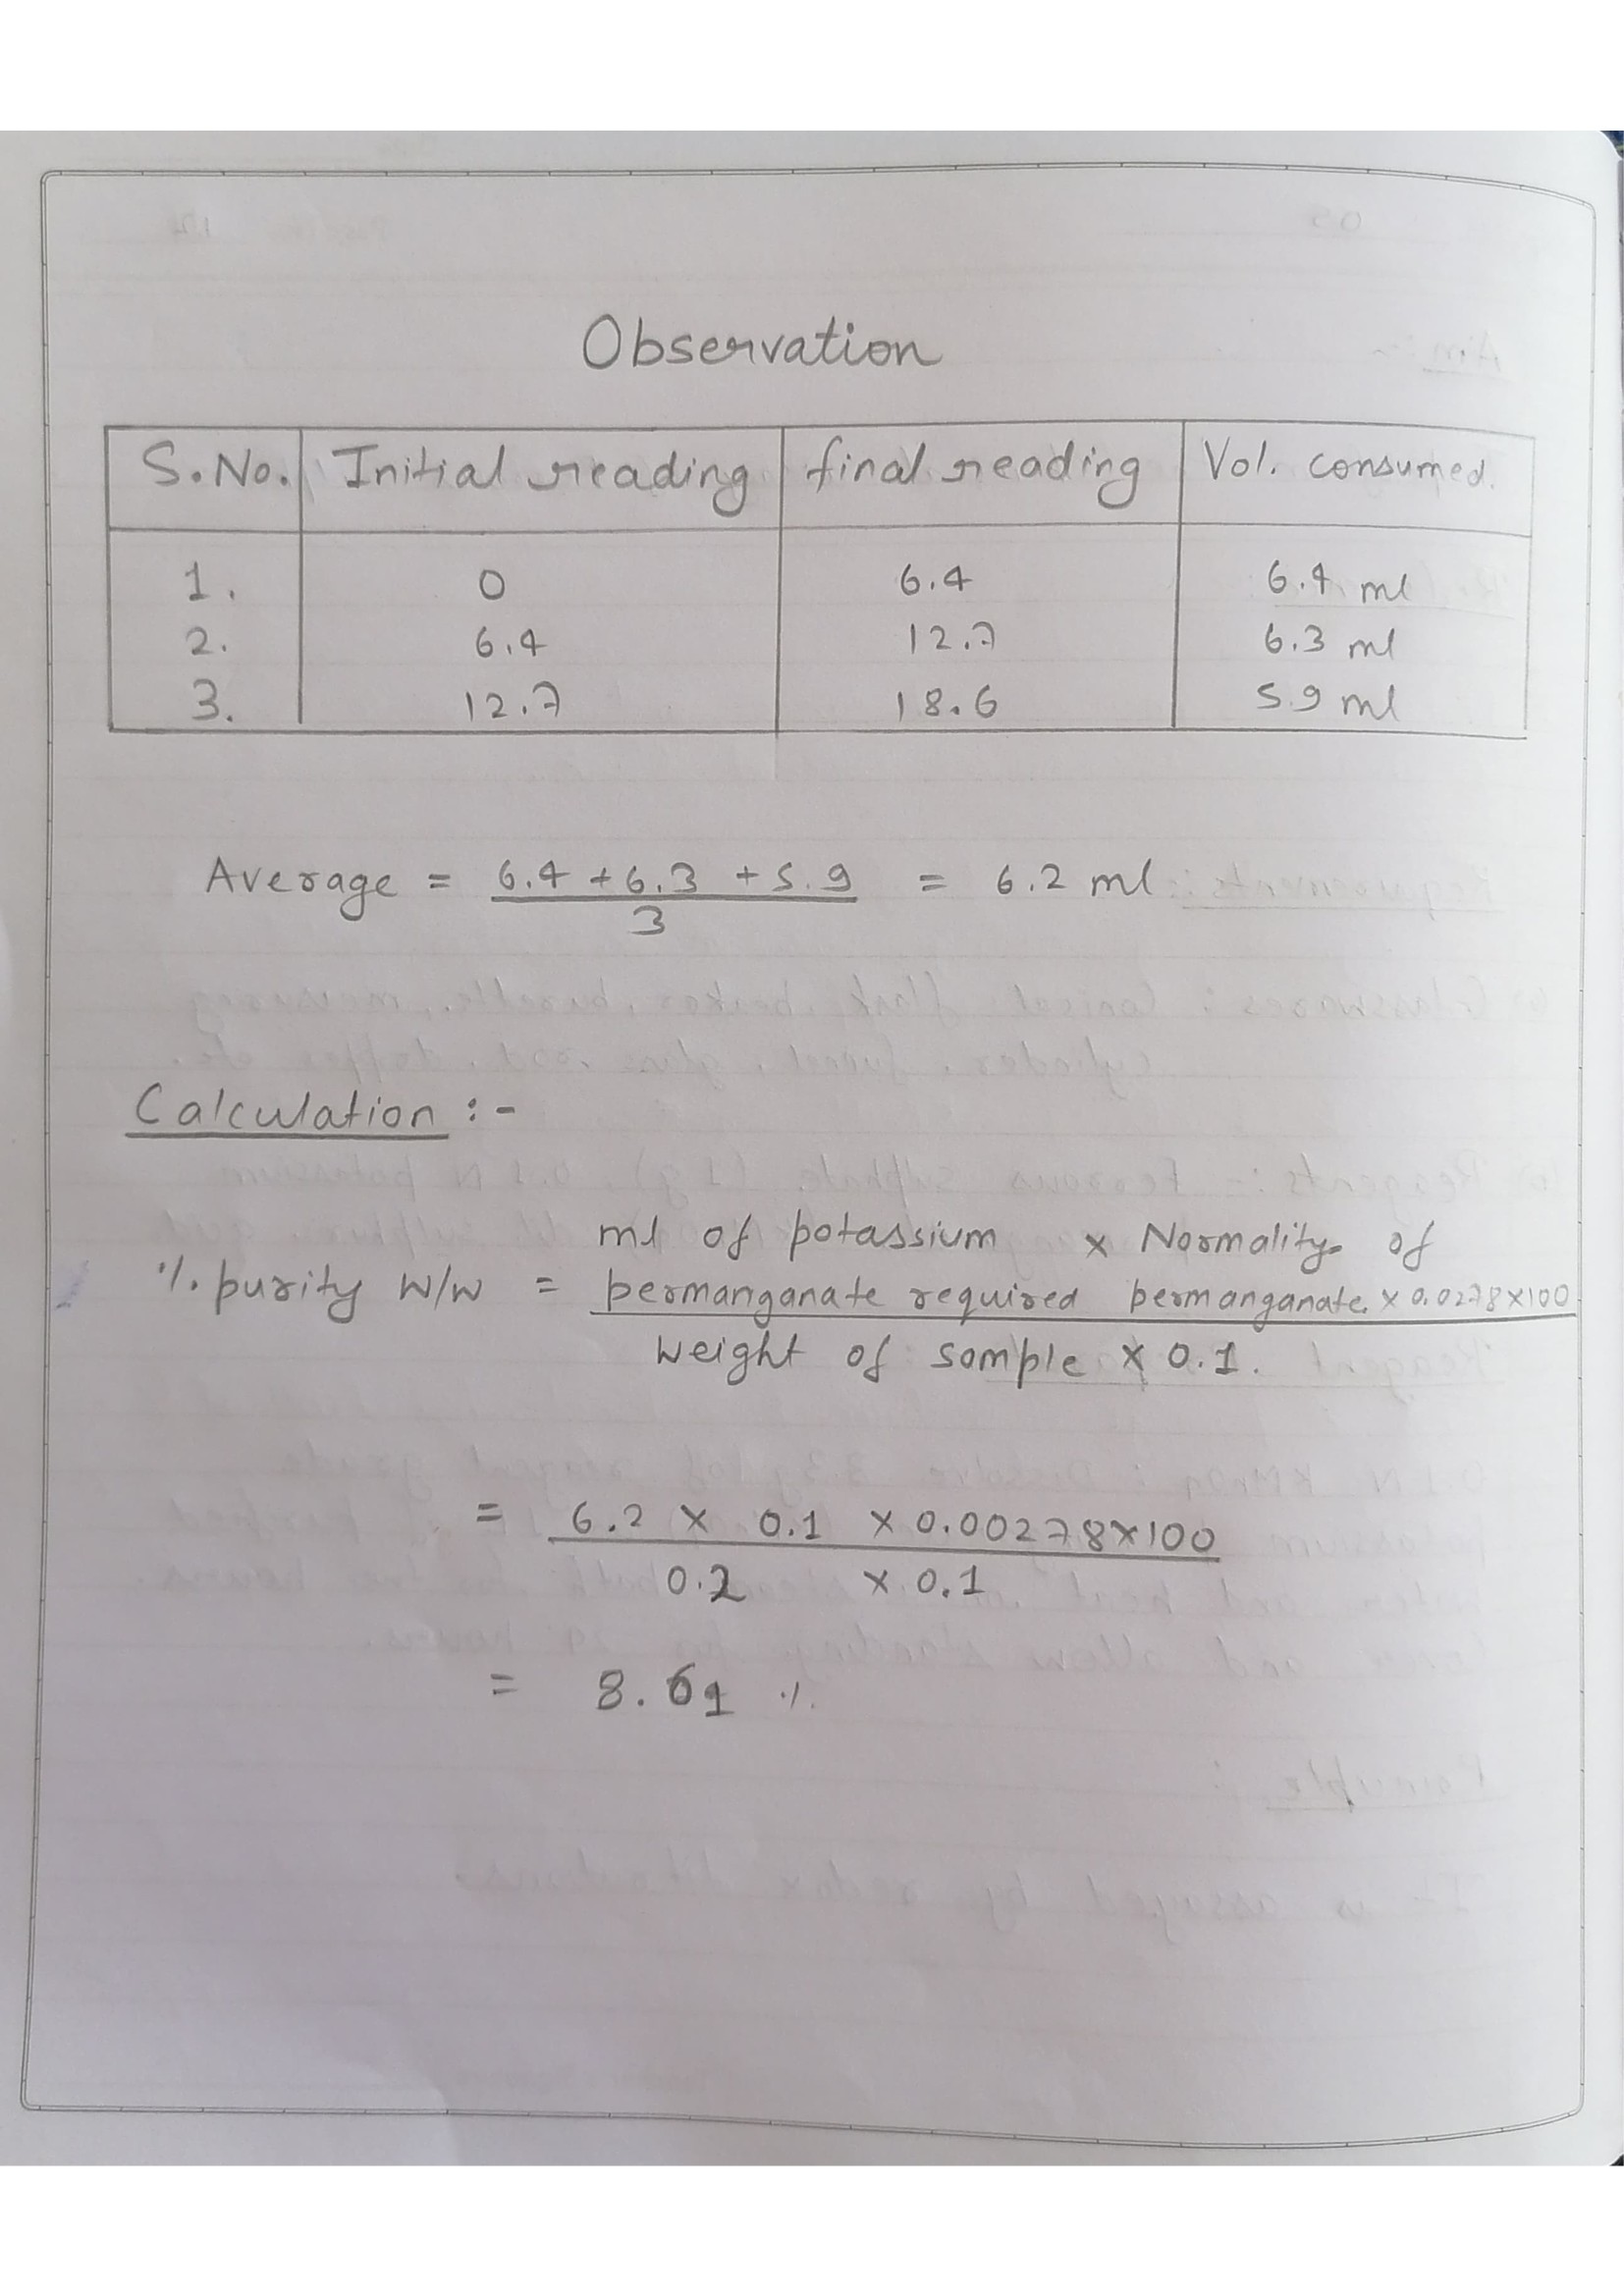 Observation
S.No. Initial reading final reading Vol. consumed.
1. 0 6.4 6.4 ml
2. 6.4 12.7 6.3 ml
3. 12.7 18.6 5.9 ml
Average = 6.4 + 6.3 + 5.9 / 3 = 6.2 ml
Calculation :-
% purity w/w = ml of potassium permanganate required × Normality of permanganate × 0.0278×100
weight of sample × 0.1.
= 6.2 × 0.1 × 0.00278×100
0.2 × 0.1
= 8.61 %